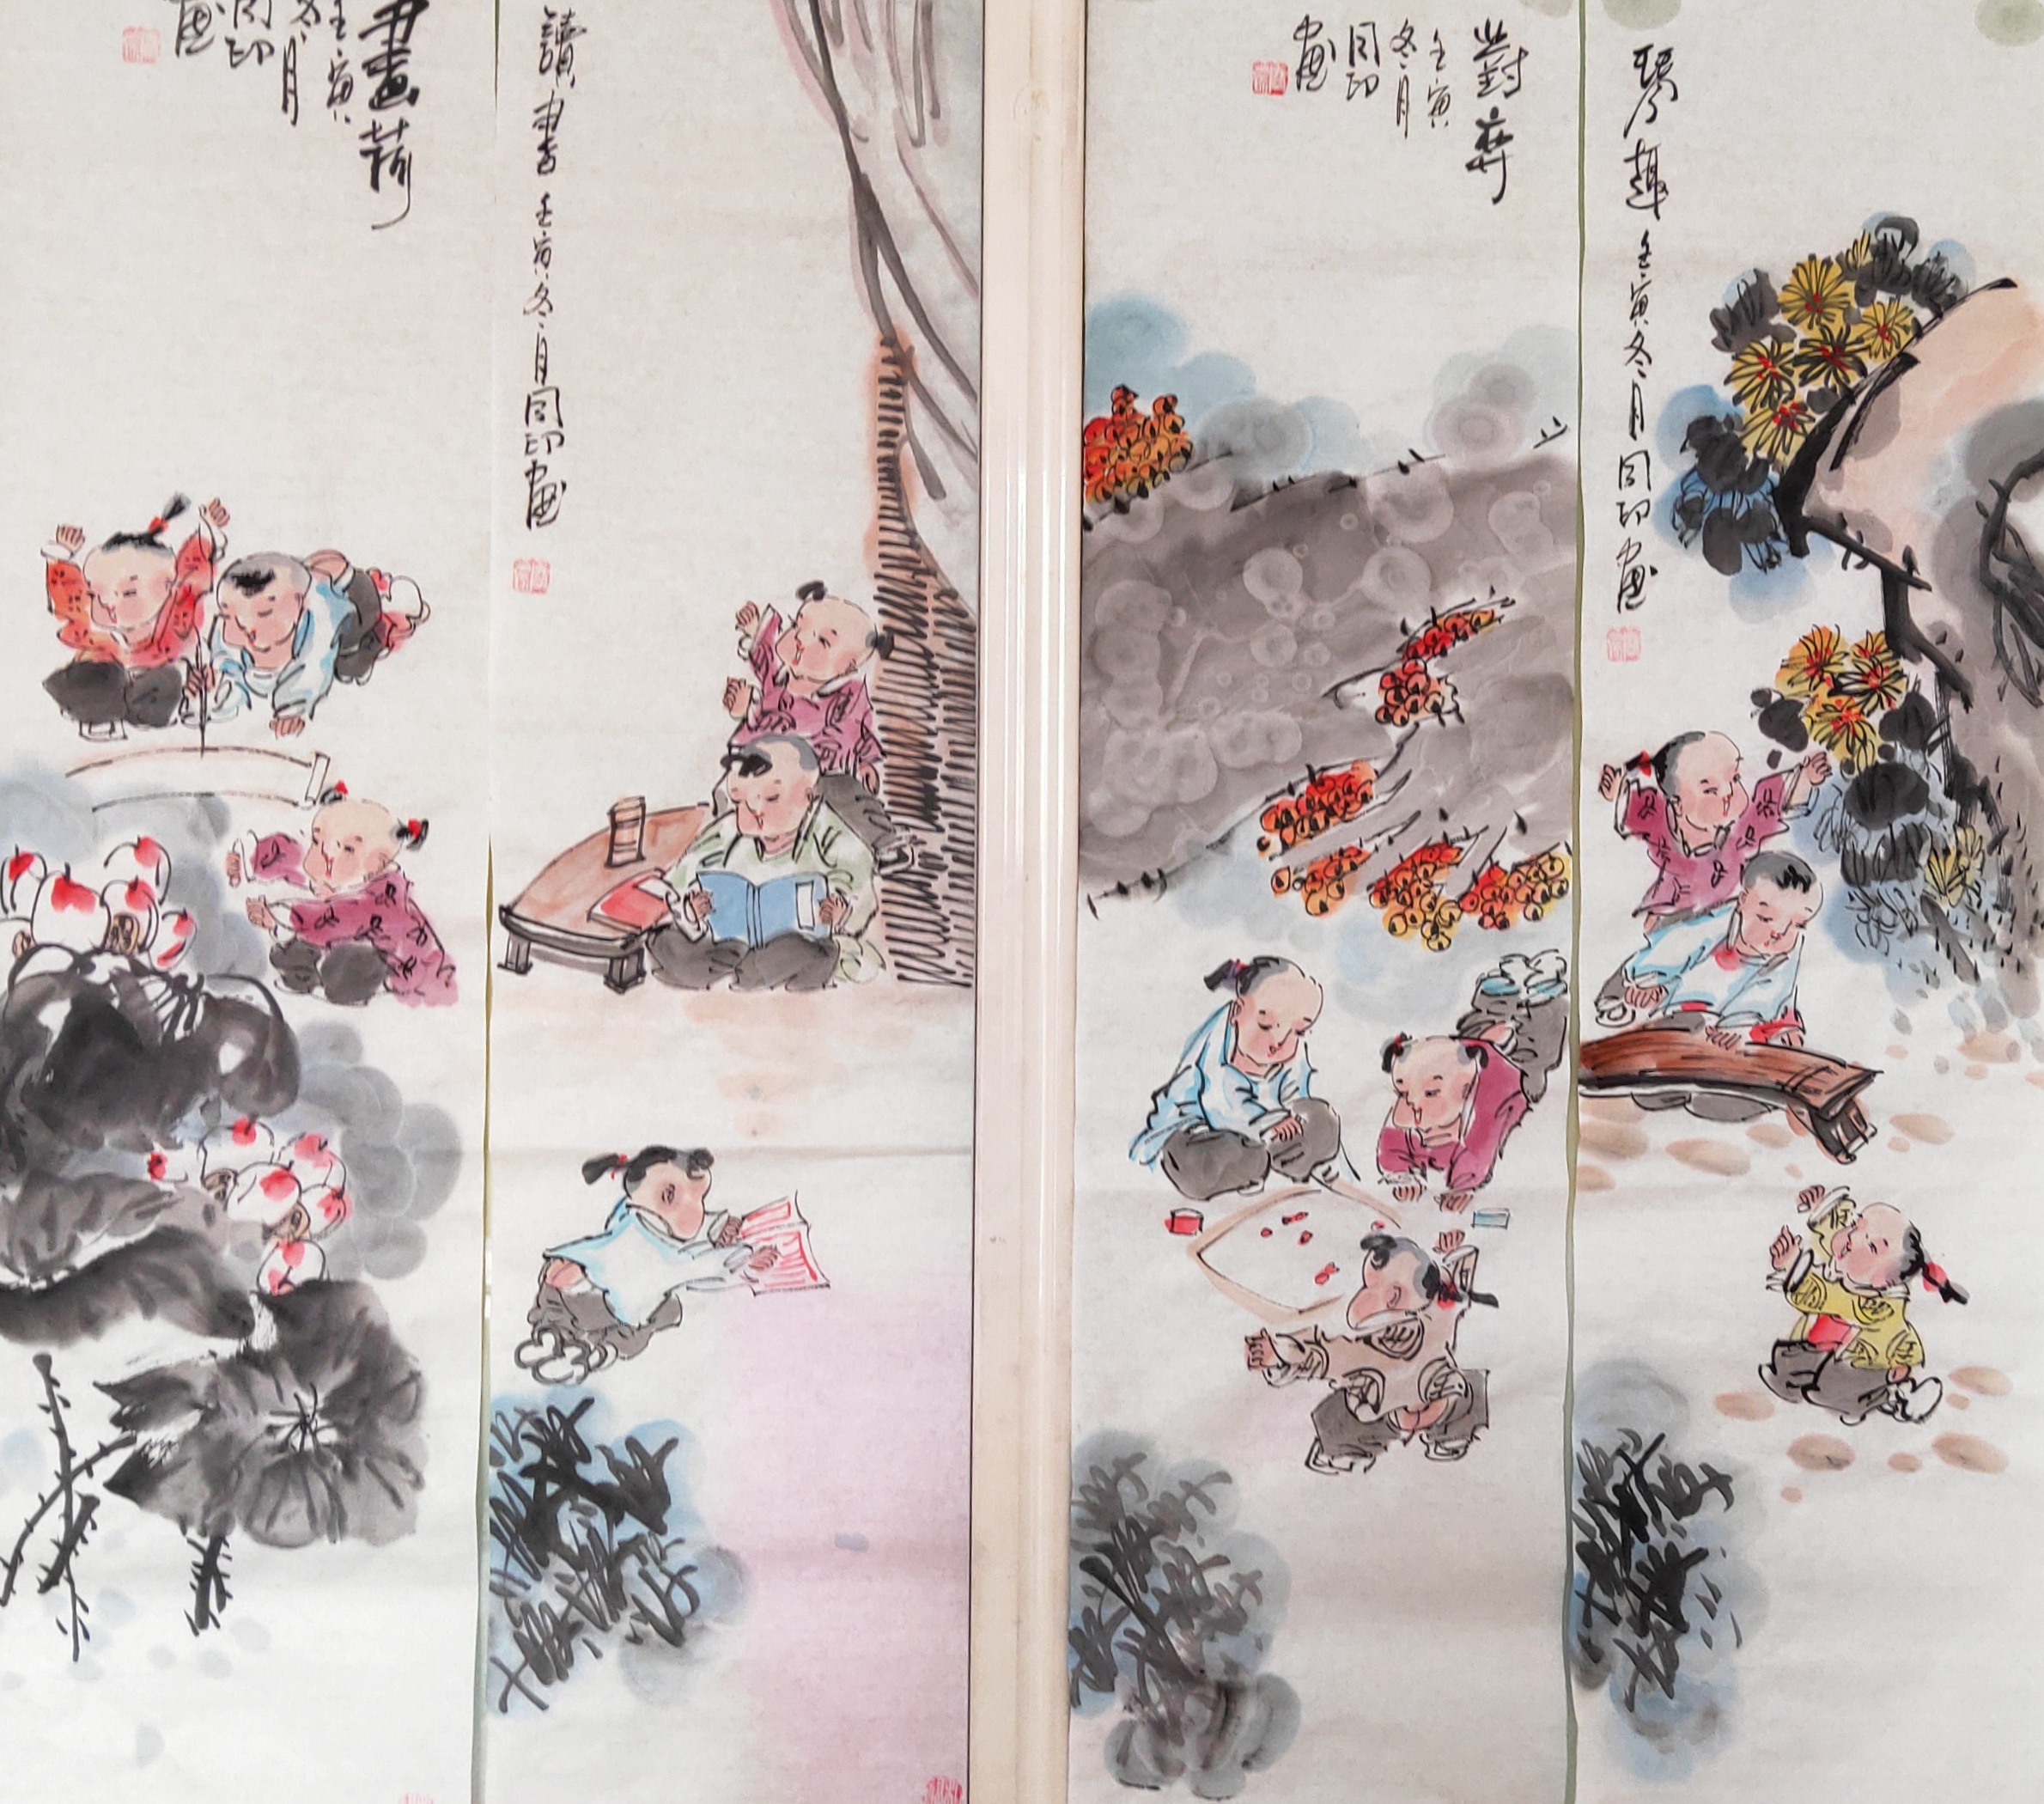 琴趣 壬寅冬月同印画
對弈
壬寅
冬月
同印
画
讀書 壬寅冬月同印画
畫荷
壬寅
冬月
同印
画